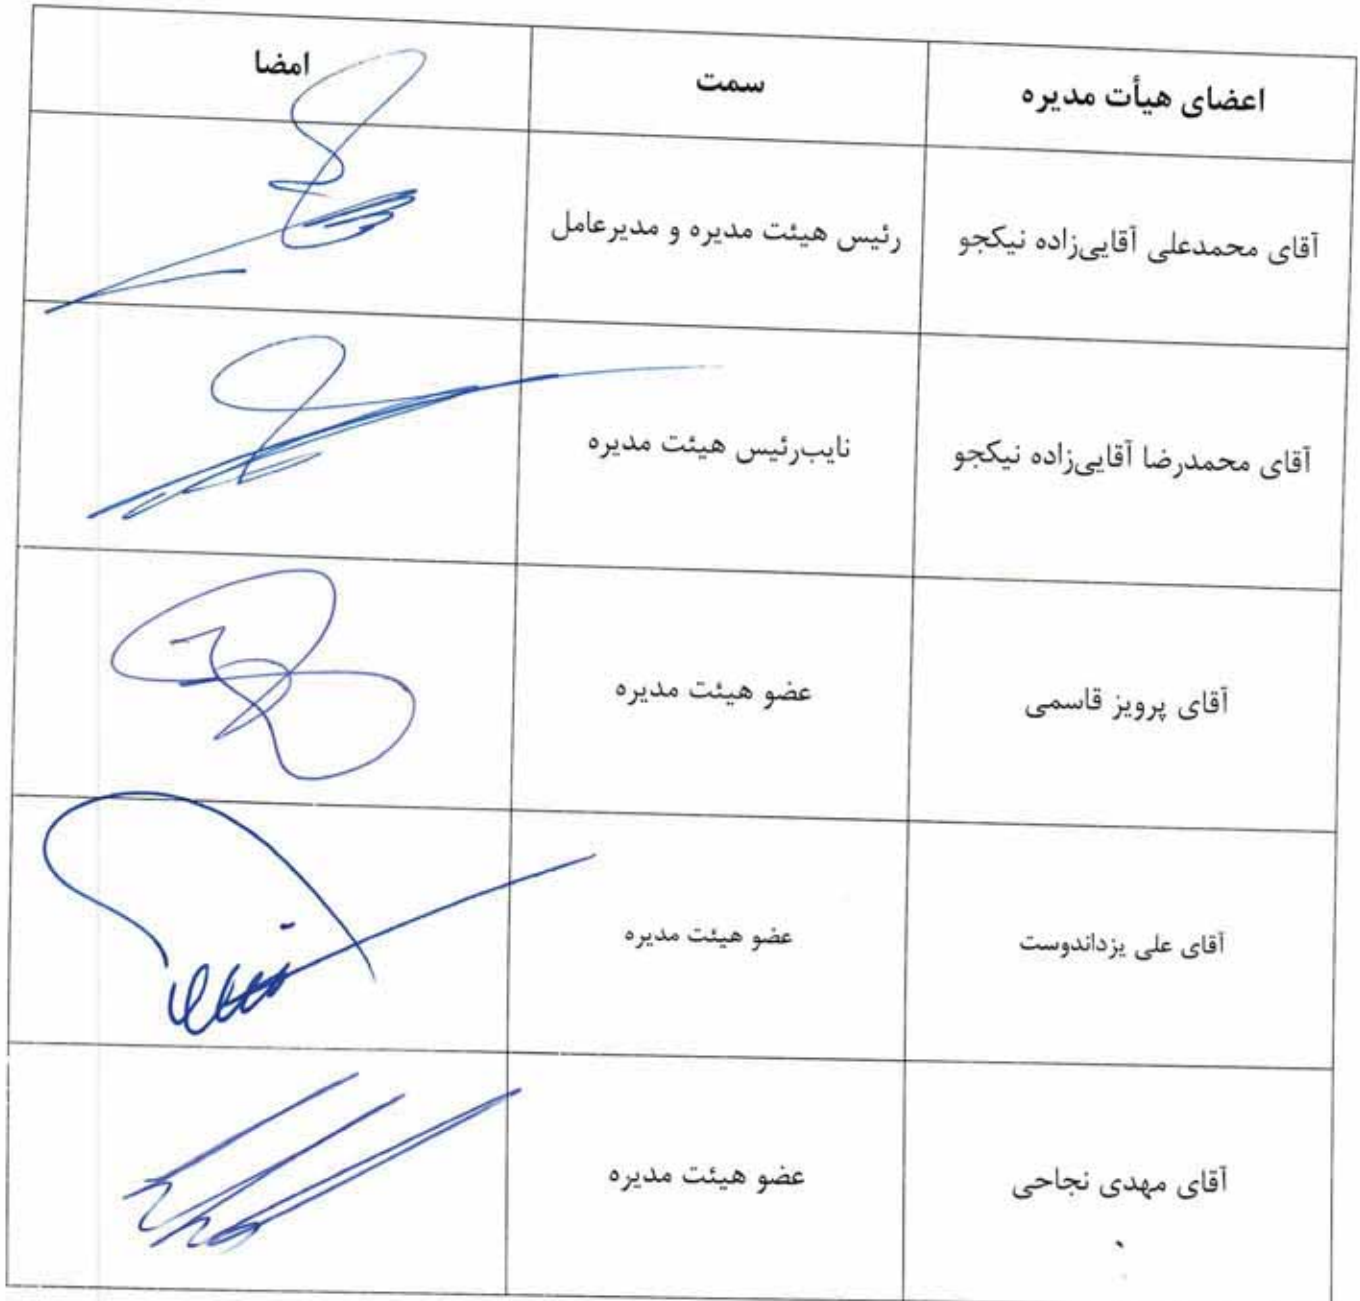 اعضای هیأت مدیره سمت امضا
آقای محمدعلی آقایی‌زاده نیکجو رئیس هیئت مدیره و مدیرعامل
آقای محمدرضا آقایی‌زاده نیکجو نایب‌رئیس هیئت مدیره
آقای پرویز قاسمی عضو هیئت مدیره
آقای علی یزداندوست عضو هیئت مدیره
آقای مهدی نجاحی عضو هیئت مدیره